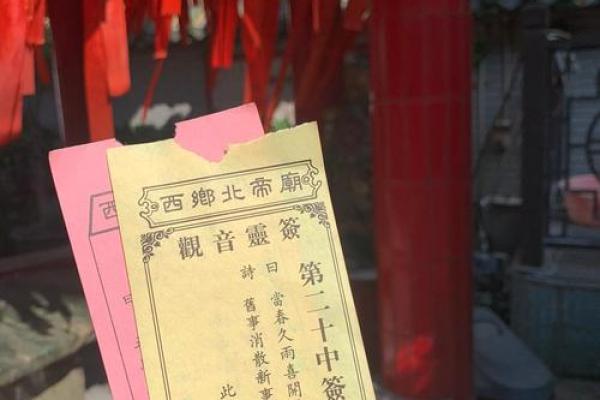 西鄉北帝廟
觀音靈簽
第二十中簽
詩曰
當春久雨喜開
舊事消散新事
此
西
曰